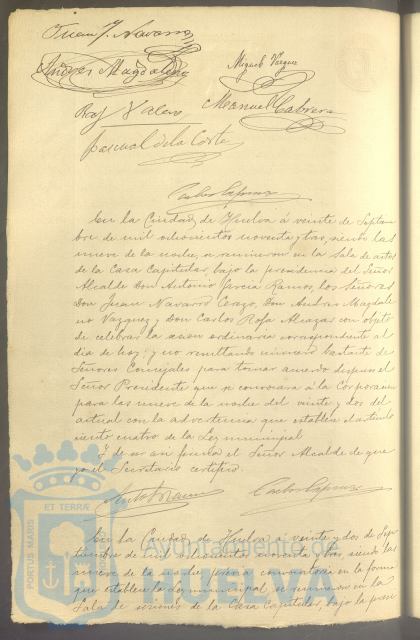 Juan J. Navarro
Andrés Magdaleno
Miguel Vazquez
Raf Valero
Manuel Cabrera
Pascual de la Corte
En la Ciudad de Huelva á veinte de Septiem
bre de mil ochocientos noventa y tres, siendo las
nueve de la noche, se reunieron en la Sala de actos
de la Casa Capitular, bajo la presidencia del Señor
Alcalde Don Antonio García Ramos, los Señores
Don Juan Navarro Cerezo, Don Andres Magdale
no Vazquez y Don Carlos Rofa Alcazar con objeto
de celebrar la sesion ordinaria correspondiente al
dia de hoy; y no resultando número bastante de
Señores Concejales para tomar acuerdo dispuso el
Señor Presidente que se convocara á la Corporacion
para las nueve de la noche del veinte y dos del
actual con la advertencia que establece el artículo
ciento cuatro de la Ley municipal
Y de ser así firma el Señor Alcalde de que
yo el Secretario certifico.
En la Ciudad de Huelva á veinte y dos de Sep
tiembre de mil ochocientos noventa y tres, siendo las
nueve de la noche previa convocatoria en la forma
que establece la Ley municipal se reunieron en la
Sala de sesiones de la Casa Capitular, bajo la presi
PORTUS MARIS
ET TERRÆ
CUSTODIA
Ayuntamiento de
HUELVA